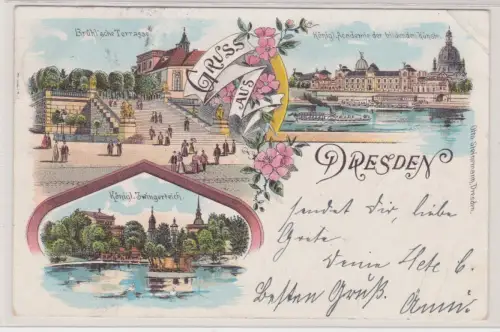 Brühl'sche Terrasse
GRUSS
AUS
Königl. Academie der bildenden Künste
DRESDEN
Königl. Zwingerteich
sendet Dir, liebe
Grete.
Deine
Besten Gruß.